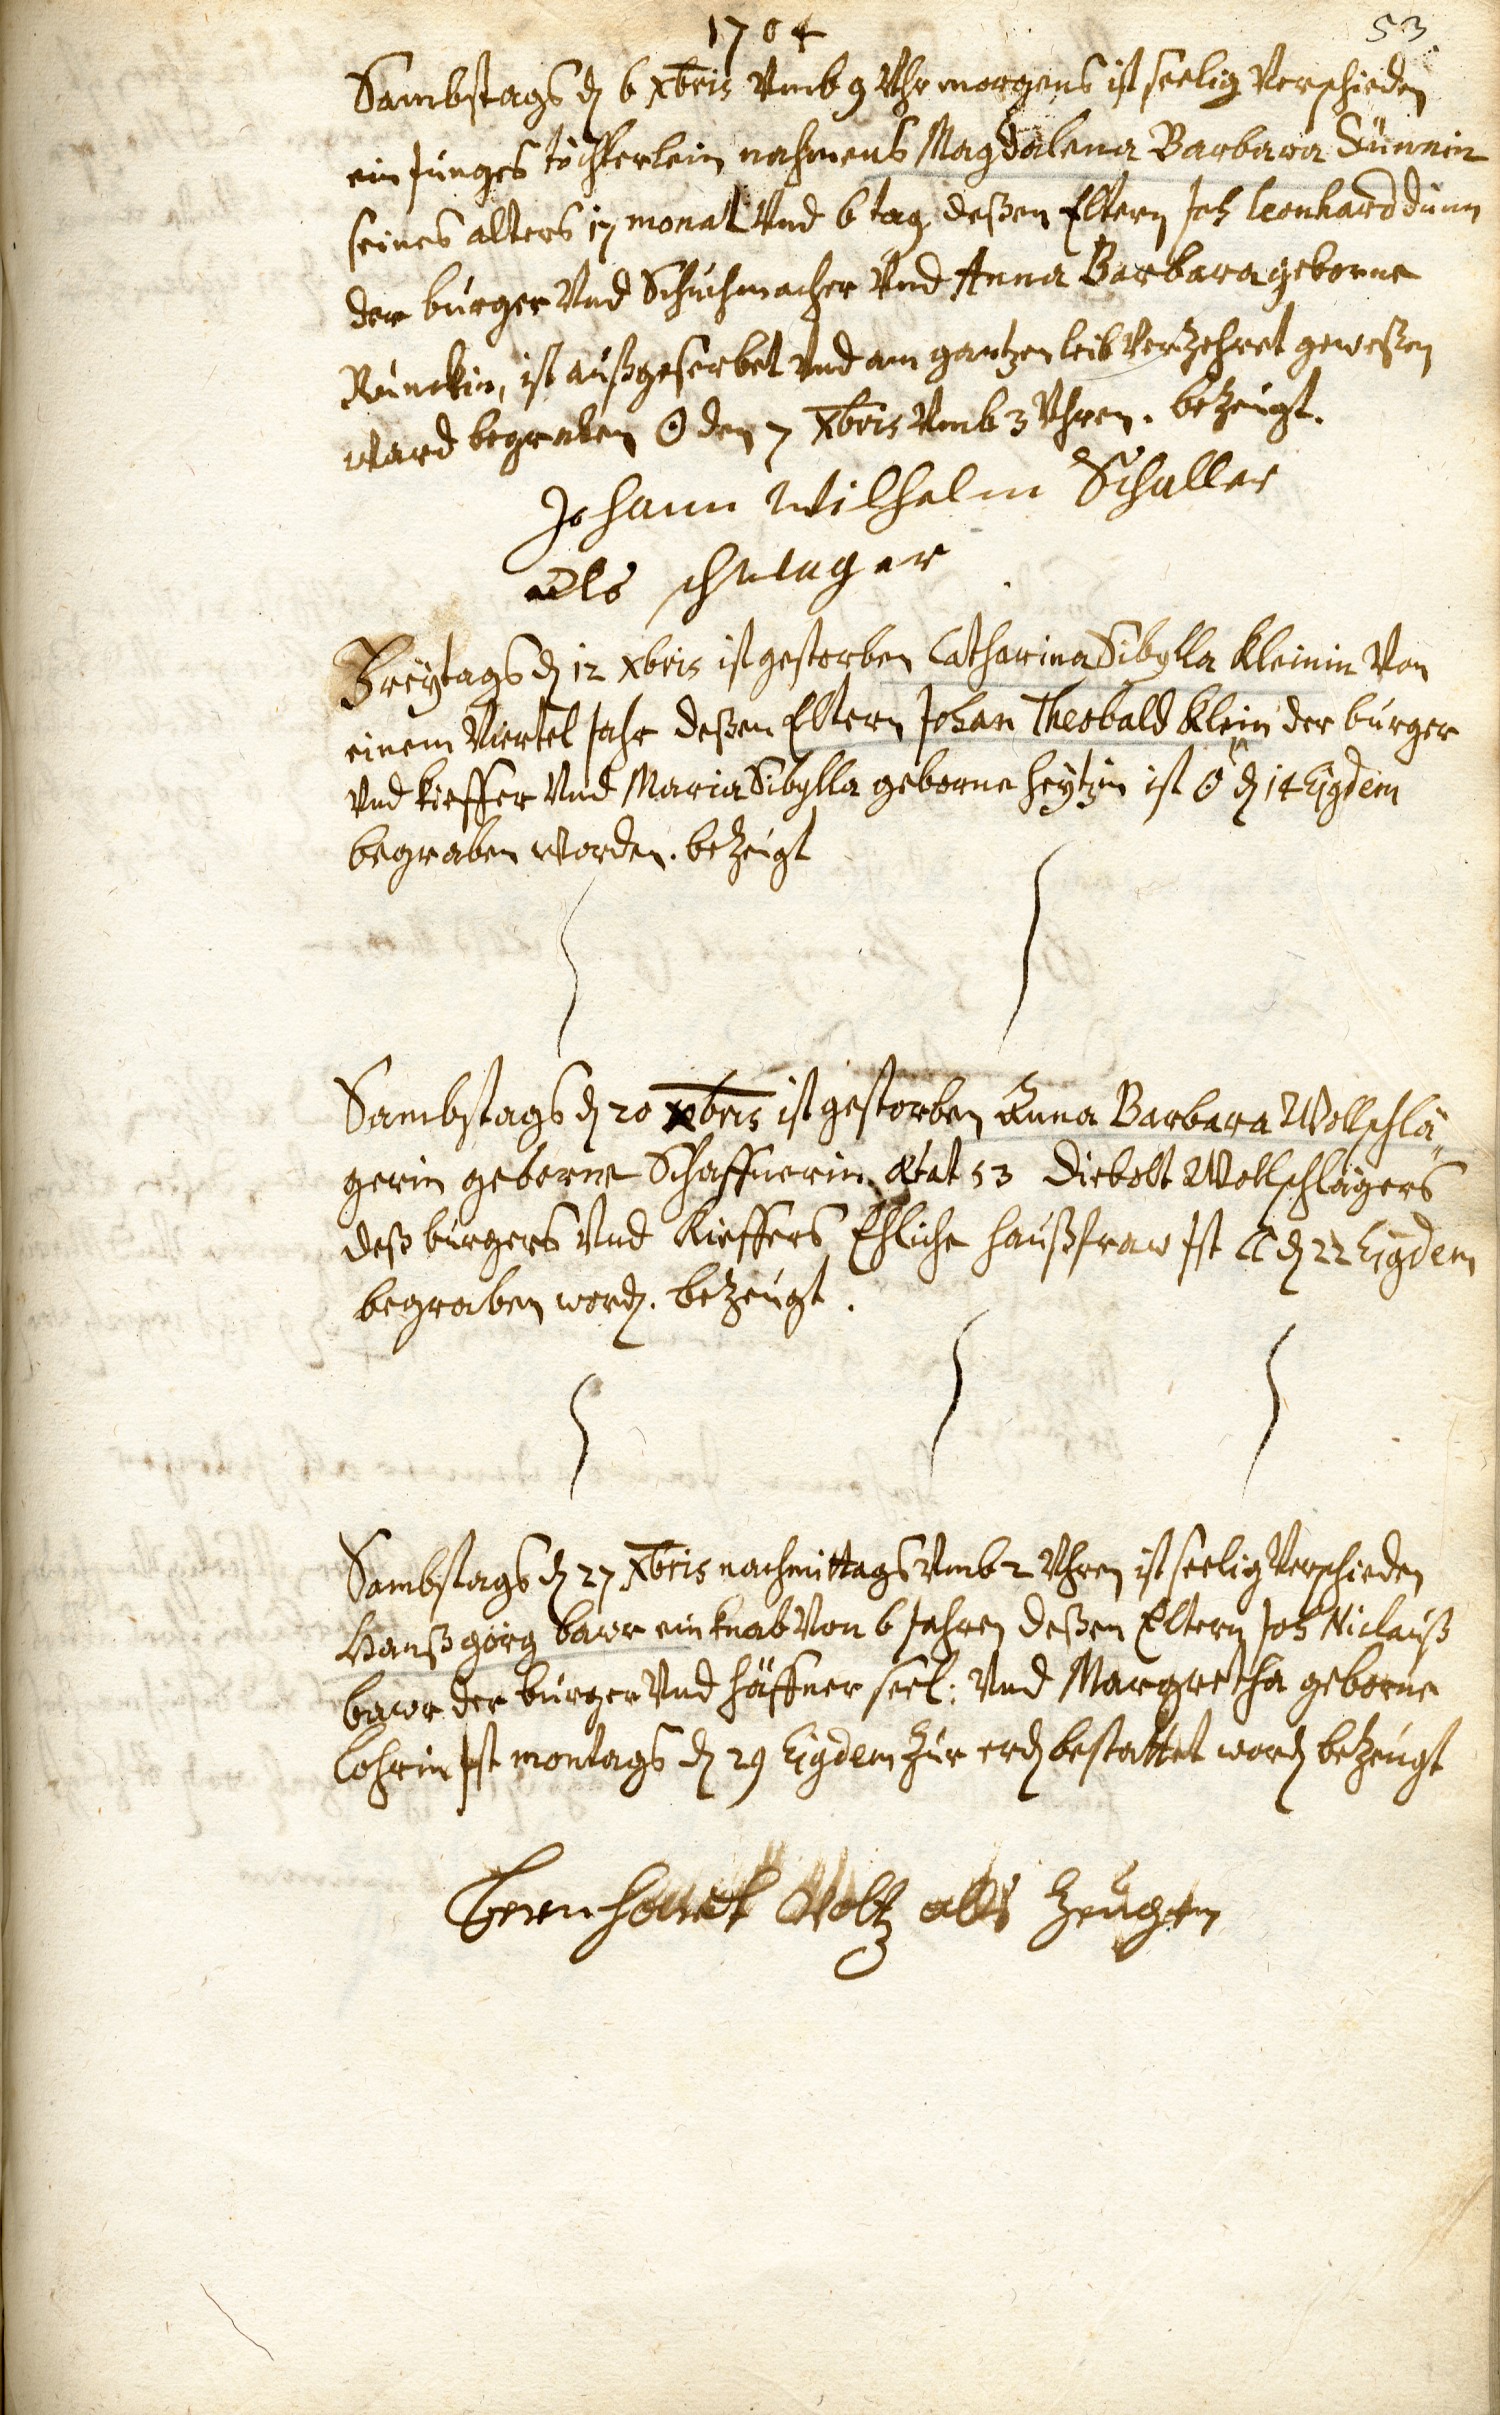 1704
53
Sambstags d 6 Xbris Vmb 9 Vhr morgens ist seelig Verschieden
ein Junges töchterlein nahmens Magdalena Barbara Dünnin
seines alters 17 monat Vnd 6 tag deßen Eltern Joh Leonhard dünn
der burger Vnd Schuhmacher Vnd Anna Barbara geborne
Rünckin, ist außgeserbet Vnd am gantzen leib Verzehret geweßen
ward begraben ☉ den 7 Xbris Vmb 3 Vhren. bezeugt.
Johann Wilhelm Schaller
als schwager
Freytags d 12 Xbris ist gestorben Catharina Sibylla Kleinin Von
einem Viertel Jahr deßen Eltern Johan Theobald Klein der burger
Vnd kieffer Vnd Maria Sibylla geborne heytzin ist ☉ d 14 Eigdem
begraben worden. bezeugt
Sambstags d 20 Xbris ist gestorben Anna Barbara Wollschlä„
gerin geborne Schaffnerin ætat 53 Diebolt Wollschlägers
deß burgers Vnd Kieffers Ehliche haußfraw Ist ☾ d 22 Eigdem
begraben word. bezeugt.
Sambstags d 27 Xbris nachmittags Vmb 2 Vhren ist seelig Verschieden
Hanß görg bawr ein knab Von 6 Jahren deßen Eltern Joh Niclauß
bawr der burger Vnd häffner seel: Vnd Margretha geborne
Lohrin Ist montags d 29 Eigdem zur erd bestattet word bezeugt
Bernhart Voltz als Zeugen